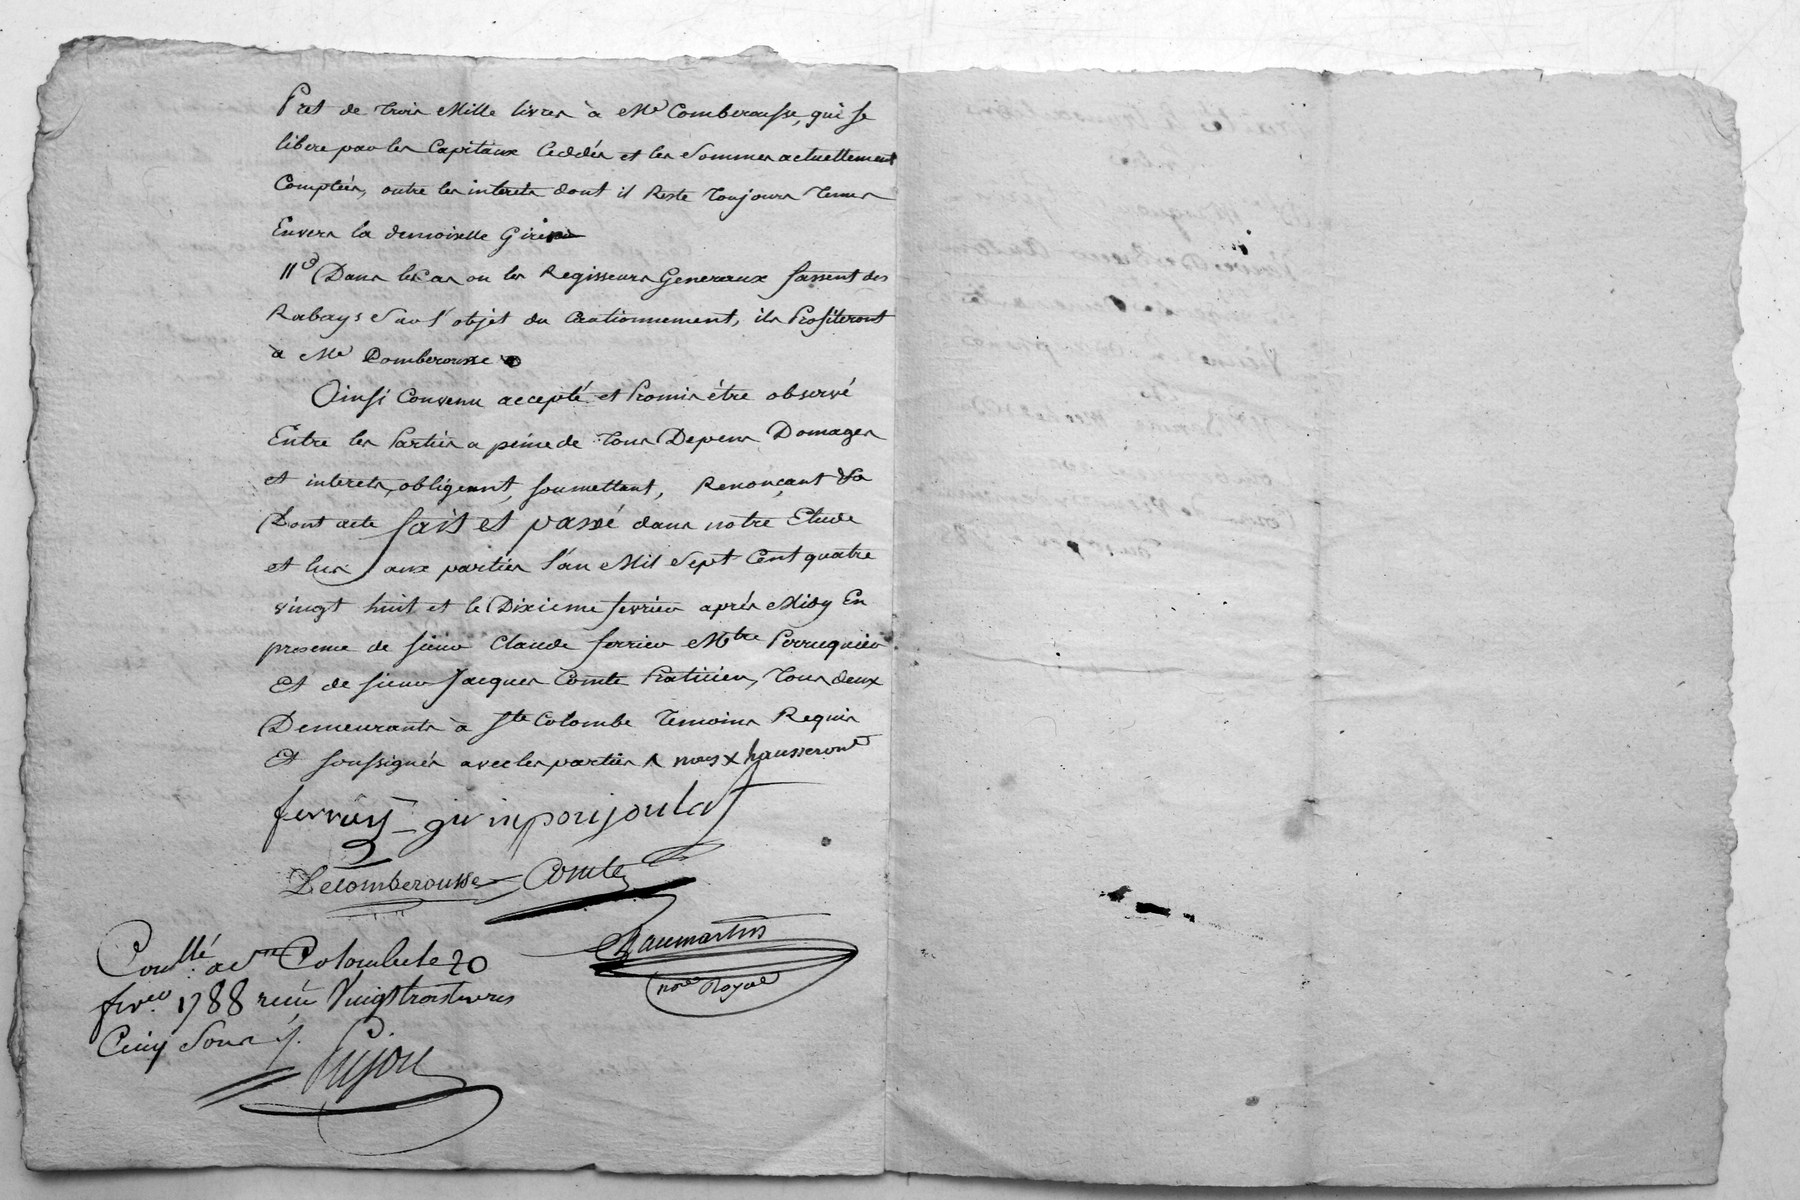 Pret de trois Mille livres à Me Comberousse, qui se
libere par les Capitaux Ceddés et les Sommes actuellement
Comptées, outre les interets dont il Reste toujours tenu
Envers la demoiselle Girin
11° Dans le Cas ou les Regisseurs Generaux fassent des
Rabays Sur l'objet du Cautionnement, ils Profiteront
à Me Comberousse
Ainsi Convenu accepté et Promis être observé
Entre les Parties a peine de tous Depens Domages
et interets, obligeant, soumettant, Renonçant &a
Dont acte fait et passé dans notre Etude
et lu aux parties l'an Mil Sept Cent quatre
vingt huit et le Dixieme fevrier après Midy En
presence de sieur Claude ferrier Mtre Perruquier
Et de sieur Jacques Comte Praticien, tous deux
Demeurants à Ste Colombe temoins Requis
Et soussignés avec les parties
ferrier girin poujoulat
Decomberousse Comte
Chaumartin
nore Royal
Coullé a Ste Colombe le 20
fevr 1788 reçu Vingt trois livres
Cinq Sous
Pujou